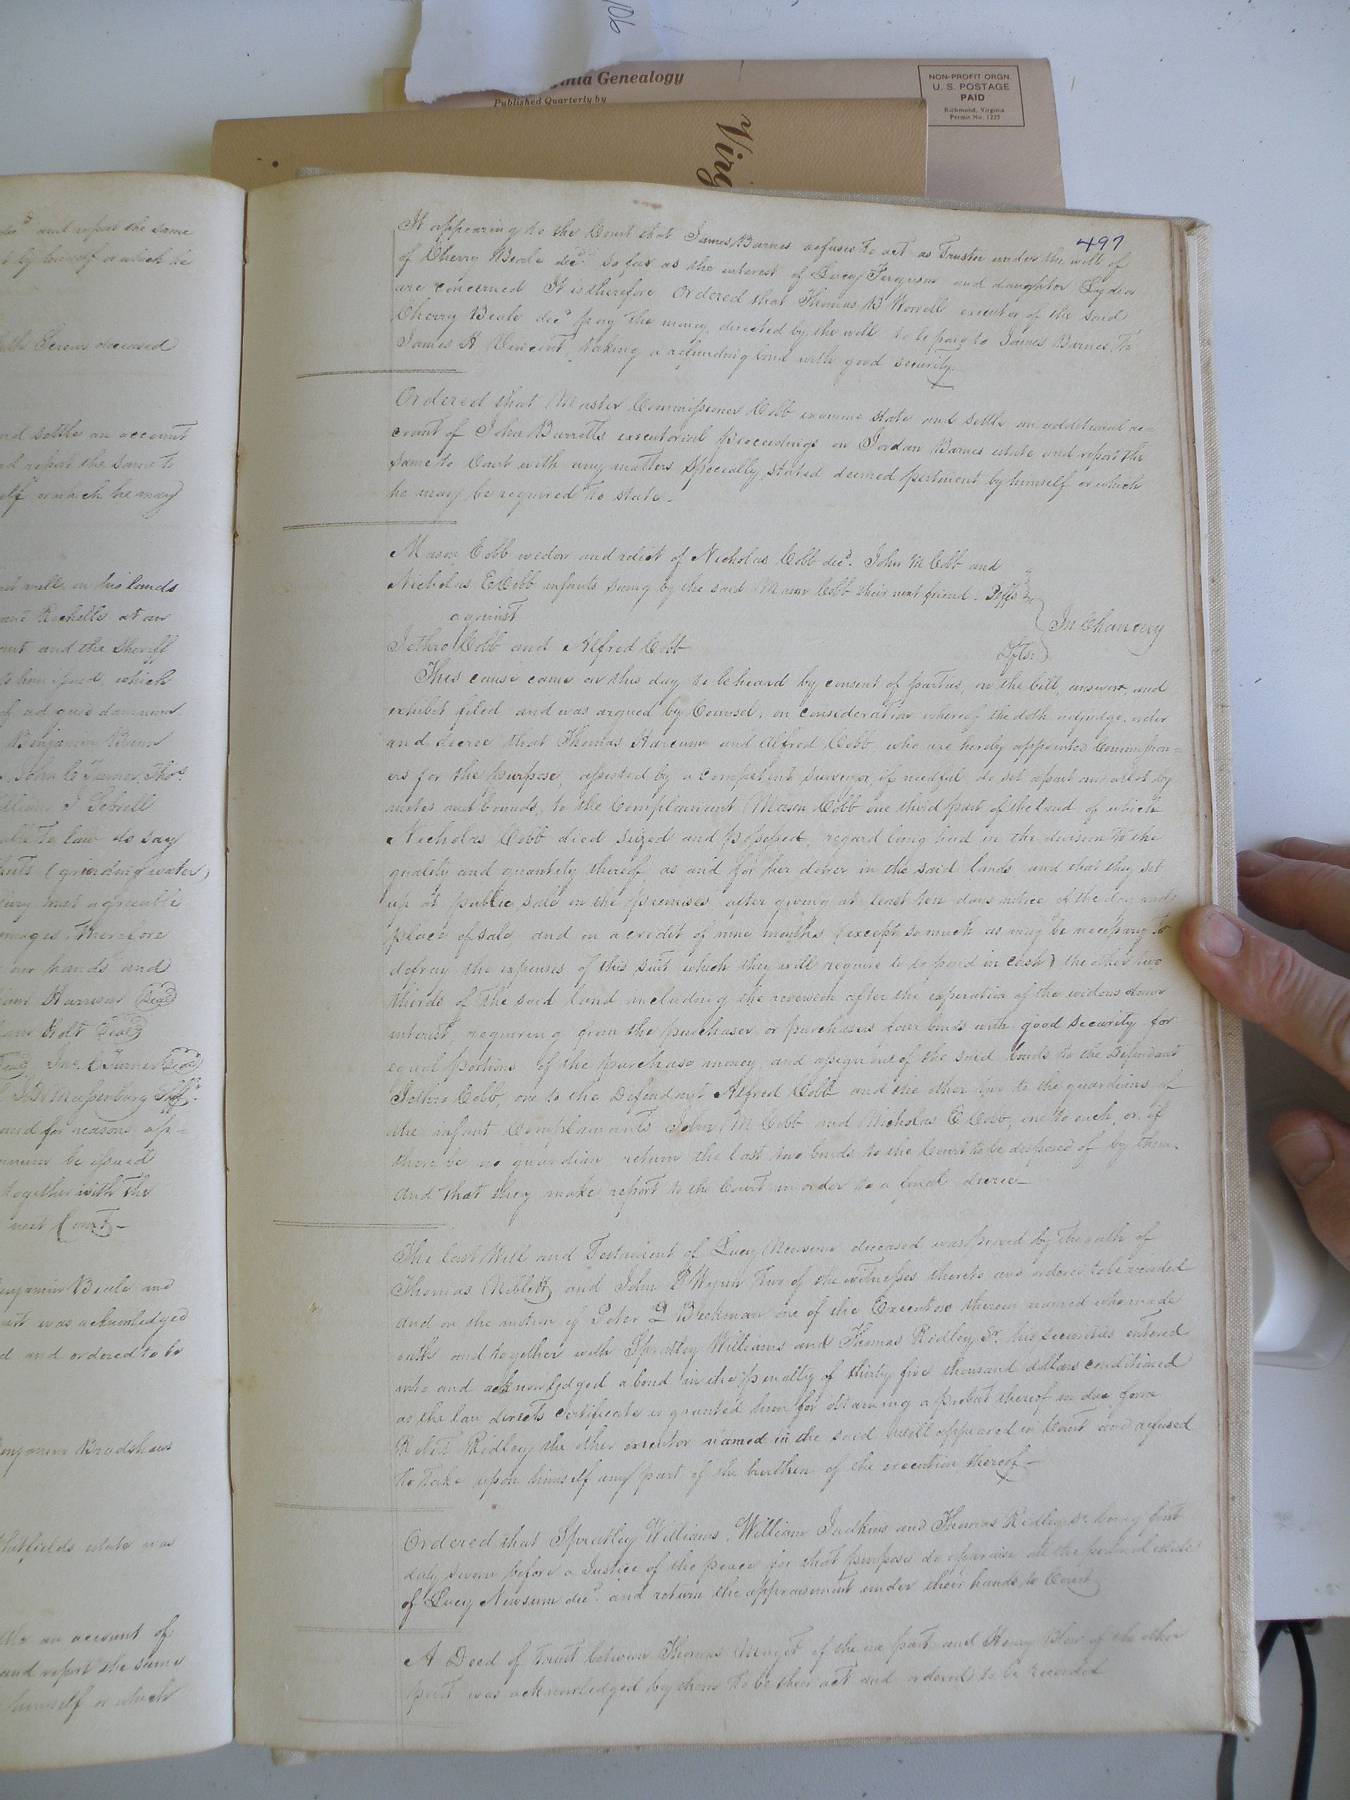 106
Virginia Genealogy
Published Quarterly by
NON-PROFIT ORGN.
U. S. POSTAGE
PAID
Richmond, Virginia
Permit No. 1225
Virg
decd and report the same
by himself or which he
deceased
and settle an account
and report the same to
himself or which he may
and mill on his lands
Rochelle at an
and the Sheriff
which
of ad quod damnum
Benjamin
John C Turner, Thos.
William J Sebrell
to law do say
(grinding water)
agreeable
damages. Therefore
our hands and
Harrison (Seal)
Holt (Seal)
(Seal) Jas. C Turner (Seal)
Massenburg Shff.
and for reasons ap-
be issued
together with the
next Court -
Benjamin Beale and
was acknowledged
and ordered to be
Benjamin Bradshaw
Whitfields estate was
settle an account of
and report the same
himself or which
497
It appearing to the Court that James Barnes refuses to act as Trustee under the will of
of Cherry Beale decd. so far as the interest of Lucy Ferguson and daughter Lydia
are concerned It is therefore Ordered that Thomas B Worrell executor of the said
Cherry Beale decd pay the money, directed by the will to be paid to James Barnes, to
James H Vincent taking a refunding bond with good security.
Ordered that Master Commissioner Cobb examine state and settle an additional ac-
count of John Barretts executorial proceedings on Jordan Barnes estate and report the
same to Court with any matters specially stated deemed pertinent by himself or which
he may be required to state.
Mason Cobb widow and relict of Nicholas Cobb decd. John M Cobb and
Nicholas E Cobb infants suing by the said Mason Cobb their next friend. Plffs
against
In Chancery
Jethro Cobb and Alfred Cobb Dfts:
This cause came on this day to be heard by consent of parties, on the bill, answer, and
exhibit filed and was argued by Counsel, on consideration whereof the doth adjudge, order
and decree that Thomas Harcum and Alfred Cobb, who are hereby appointed Commission-
ers for the purpose, assisted by a competent surveyor, if needful, do set apart and allot by
metes and bounds, to the Complainant Mason Cobb one third part of the land of which
Nicholas Cobb died seized and possessed, regard being had in the division to the
quality and quantity thereof as and for her dower in the said lands and that they set
up at public sale on the premises after giving at least ten days notice of the day and
place of sale and on a credit of nine months (except so much as may be necessary to
defray the expenses of this suit which they will require to be paid in cash) the other two
thirds of the said land including the reversion after the expiration of the widows dower
interest, requiring from the purchaser or purchasers four bonds with good security for
equal portions of the purchase money, and assign one of the said bonds to the Defendant
Jethro Cobb, one to the Defendant Alfred Cobb and the other two to the guardians of
the infant Complainants John M Cobb and Nicholas E Cobb, one to each, or if
there be no guardian return the last two bonds to the Court to be disposed of by them.
And that they make report to the Court in order to a final decree -
The last Will and Testament of Lucy Newsum deceased was proved by the oath of
Thomas Niblett and John P Wynn two of the witnesses thereto and ordered to be recorded
And on the motion of Peter Beckman one of the Executors therein named who made
oath and together with Spratley Williams and Thomas Ridley Sr. his securities entered
into and acknowledged a bond in the penalty of thirty five thousand dollars conditioned
as the law directs certificate is granted him for obtaining a probat thereof in due form
Robt. Ridley the other executor named in the said Will appeared in Court and refused
to take upon himself any part of the burthen of the execution thereof -
Ordered that Spratley Williams, William Judkins and Thomas Ridley Sr being first
duly sworn before a Justice of the peace for that purpose do appraise all the personal estate
of Lucy Newsum decd. and return the appraisement under their hands to Court
A Deed of trust between Thomas of the one part and Henry Blow of the other
part was acknowledged by them to be their act and ordered to be recorded